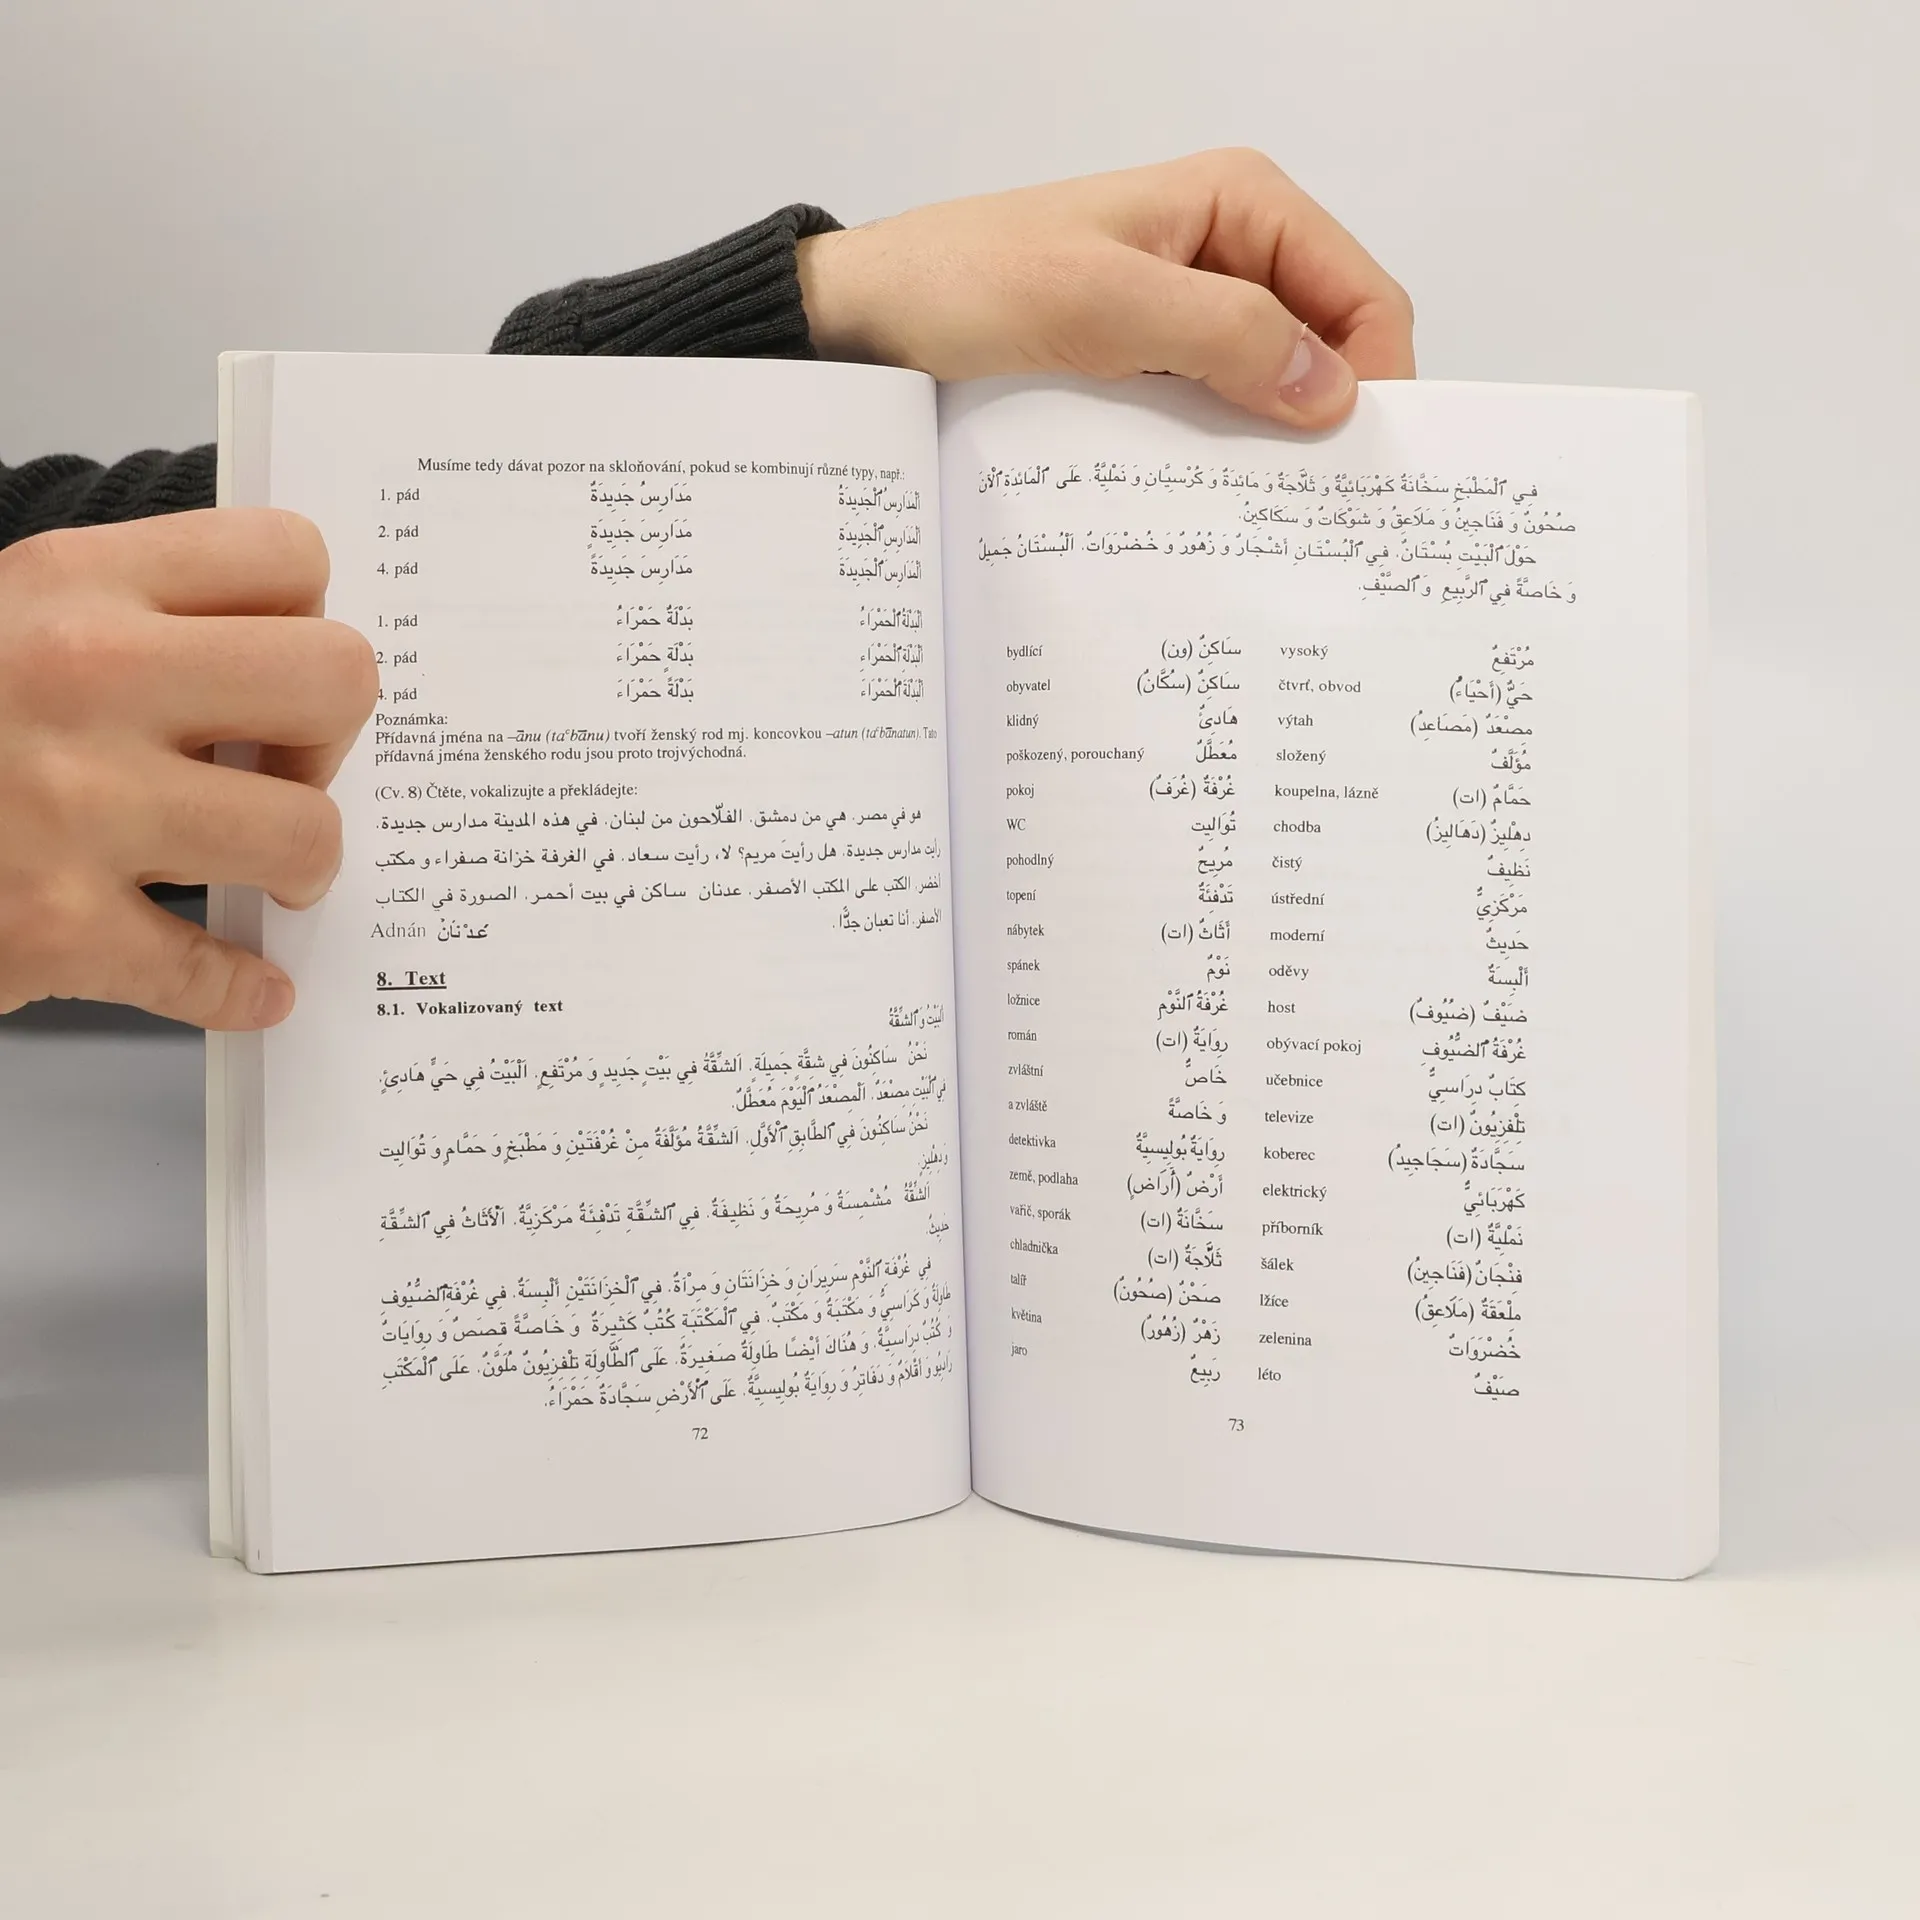 Musíme tedy dávat pozor na skloňování, pokud se kombinují různé typy, např.:
1. pád مَدَارِسُ جَدِيدَةٌ اَلْمَدَارِسُ ٱلْجَدِيدَةُ
2. pád مَدَارِسَ جَدِيدَةٍ اَلْمَدَارِسِ ٱلْجَدِيدَةِ
4. pád مَدَارِسَ جَدِيدَةً اَلْمَدَارِسَ ٱلْجَدِيدَةَ
1. pád بَدْلَةٌ حَمْرَاءُ اَلْبَدْلَةُ ٱلْحَمْرَاءُ
2. pád بَدْلَةٍ حَمْرَاءَ اَلْبَدْلَةِ ٱلْحَمْرَاءِ
4. pád بَدْلَةً حَمْرَاءَ اَلْبَدْلَةَ ٱلْحَمْرَاءَ
Poznámka:
Přídavná jména na –ānu (taᶜbānu) tvoří ženský rod mj. koncovkou –atun (taᶜbānatun). Tato
přídavná jména ženského rodu jsou proto trojvýchodná.
(Cv. 8) Čtěte, vokalizujte a překládejte:
هو في مصر. هي من دمشق. الفلّاحون من لبنان. في هذه المدينة مدارس جديدة.
رأيت مدارس جديدة. هل رأيتَ مريم؟ لا، رأيت سعاد. في الغرفة خزانة صفراء و مكتب
أخضر. الكتب على المكتب الأصفر. عدنان ساكن في بيت أحمر. الصورة في الكتاب
الأصفر. أنا تعبان جدًّا.
Adnán عَدْنَانُ
8. Text
8.1. Vokalizovaný text
اَلْبَيْتُ وَ ٱلشِّقَّةُ
نَحْنُ سَاكِنُونَ فِي شِقَّةٍ جَمِيلَةٍ. اَلشِّقَّةُ فِي بَيْتٍ جَدِيدٍ وَ مُرْتَفِعٍ. اَلْبَيْتُ فِي حَيٍّ هَادِئٍ.
فِي ٱلْبَيْتِ مِصْعَدٌ. اَلْمِصْعَدُ ٱلْيَوْمَ مُعَطَّلٌ.
نَحْنُ سَاكِنُونَ فِي ٱلطَّابِقِ ٱلْأَوَّلِ. اَلشِّقَّةُ مُؤَلَّفَةٌ مِنْ غُرْفَتَيْنِ وَ مَطْبَخٍ وَ حَمَّامٍ وَ تُوَالِيت
وَ دِهْلِيزٍ.
اَلشِّقَّةُ مُشْمِسَةٌ وَ مُرِيحَةٌ وَ نَظِيفَةٌ. فِي ٱلشِّقَّةِ تَدْفِئَةٌ مَرْكَزِيَّةٌ. اَلْأَثَاثُ فِي ٱلشِّقَّةِ
حَدِيثٌ.
فِي غُرْفَةِ ٱلنَّوْمِ سَرِيرَانِ وَ خِزَانَتَانِ وَ مِرْآةٌ. فِي ٱلْخِزَانَتَيْنِ أَلْبِسَةٌ. فِي غُرْفَةِ ٱلضُّيُوفِ
طَاوِلَةٌ وَ كَرَاسِيُّ وَ مَكْتَبَةٌ وَ مَكْتَبٌ. فِي ٱلْمَكْتَبَةِ كُتُبٌ كَثِيرَةٌ وَ خَاصَّةً قِصَصٌ وَ رِوَايَاتٌ
وَ كُتُبٌ دِرَاسِيَّةٌ. وَ هُنَاكَ أَيْضًا طَاوِلَةٌ صَغِيرَةٌ. عَلَى ٱلطَّاوِلَةِ تِلْفِزِيُونٌ مُلَوَّنٌ. عَلَى ٱلْمَكْتَبِ
رَادِيُو وَ أَقْلَامٌ وَ دَفَاتِرُ وَ رِوَايَةٌ بُولِيسِيَّةٌ. عَلَى ٱلْأَرْضِ سَجَّادَةٌ حَمْرَاءُ.
72
فِي ٱلْمَطْبَخِ سَخَّانَةٌ كَهْرَبَائِيَّةٌ وَ ثَلَّاجَةٌ وَ مَائِدَةٌ وَ كُرْسِيَّانِ وَ نَمْلِيَّةٌ. عَلَى ٱلْمَائِدَةِ ٱلْآنَ
صُحُونٌ وَ فَنَاجِينُ وَ مَلَاعِقُ وَ شَوْكَاتٌ وَ سَكَاكِينُ.
حَوْلَ ٱلْبَيْتِ بُسْتَانٌ. فِي ٱلْبُسْتَانِ أَشْجَارٌ وَ زُهُورٌ وَ خُضْرَوَاتٌ. اَلْبُسْتَانُ جَمِيلٌ
وَ خَاصَّةً فِي ٱلرَّبِيعِ وَ ٱلصَّيْفِ.
bydlící سَاكِنٌ (ون) vysoký مُرْتَفِعٌ
obyvatel سَاكِنٌ (سُكَّانٌ) čtvrť, obvod حَيٌّ (أَحْيَاءٌ)
klidný هَادِئٌ výtah مِصْعَدٌ (مَصَاعِدُ)
poškozený, porouchaný مُعَطَّلٌ složený مُؤَلَّفٌ
pokoj غُرْفَةٌ (غُرَفٌ) koupelna, lázně حَمَّامٌ (ات)
WC تُوَالِيت chodba دِهْلِيزٌ (دَهَالِيزُ)
pohodlný مُرِيحٌ čistý نَظِيفٌ
topení تَدْفِئَةٌ ústřední مَرْكَزِيٌّ
nábytek أَثَاثٌ (ات) moderní حَدِيثٌ
spánek نَوْمٌ oděvy أَلْبِسَةٌ
ložnice غُرْفَةُ ٱلنَّوْمِ host ضَيْفٌ (ضُيُوفٌ)
román رِوَايَةٌ (ات) obývací pokoj غُرْفَةُ ٱلضُّيُوفِ
zvláštní خَاصٌّ učebnice كِتَابٌ دِرَاسِيٌّ
a zvláště وَ خَاصَّةً televize تِلْفِزِيُونٌ (ات)
detektivka رِوَايَةٌ بُولِيسِيَّةٌ koberec سَجَّادَةٌ (سَجَاجِيدُ)
země, podlaha أَرْضٌ (أَرَاضٍ) elektrický كَهْرَبَائِيٌّ
vařič, sporák سَخَّانَةٌ (ات) příborník نَمْلِيَّةٌ (ات)
chladnička ثَلَّاجَةٌ (ات) šálek فِنْجَانٌ (فَنَاجِينُ)
talíř صَحْنٌ (صُحُونٌ) lžíce مِلْعَقَةٌ (مَلَاعِقُ)
květina زَهْرٌ (زُهُورٌ) zelenina خُضْرَوَاتٌ
jaro رَبِيعٌ léto صَيْفٌ
73